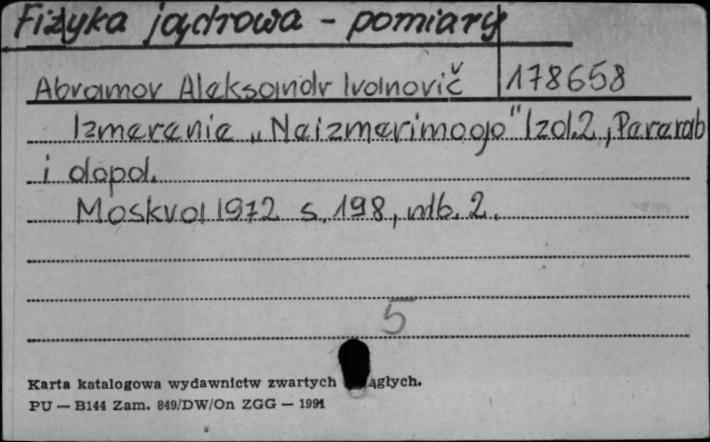 Fizyka jądrowa - pomiary
Abramov Aleksandr Ivanovič 178658
Izmerenie „Neizmerimogo" Izd. 2, Pererab
i dopol.
Moskva 1972 s. 198, nlb. 2.
5
Karta katalogowa wydawnictw zwartych i ciągłych.
PU — B144 Zam. 849/DW/On ZGG — 1991